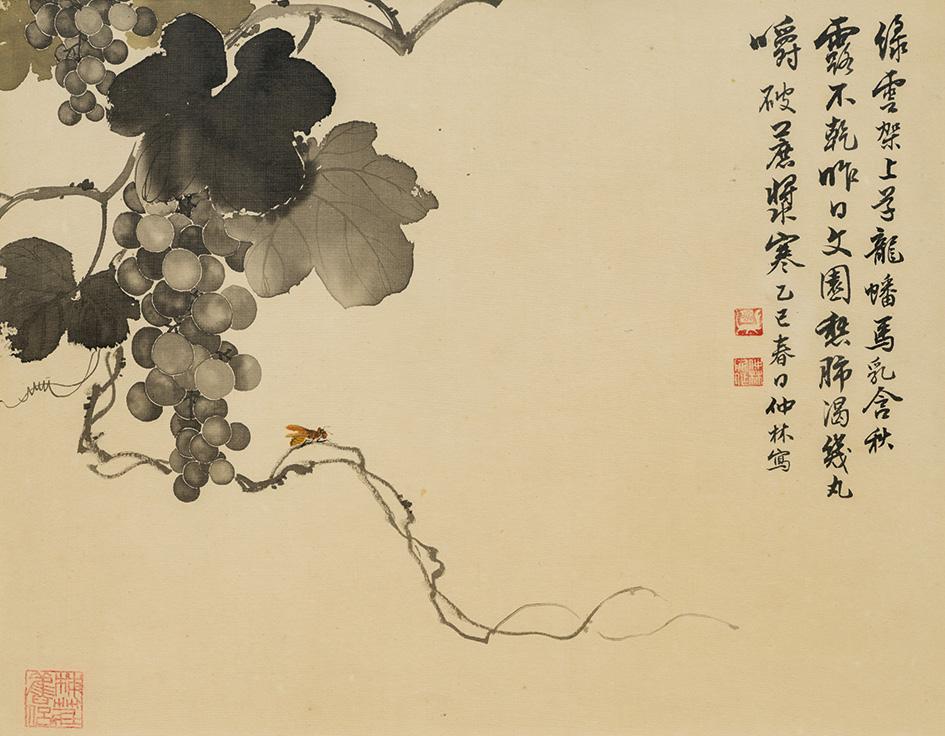 綠雲架上学龍蟠馬乳含秋
露不乾昨日文園愁肺渴幾丸
嚼破蔗漿寒乙巳春日仲林寫